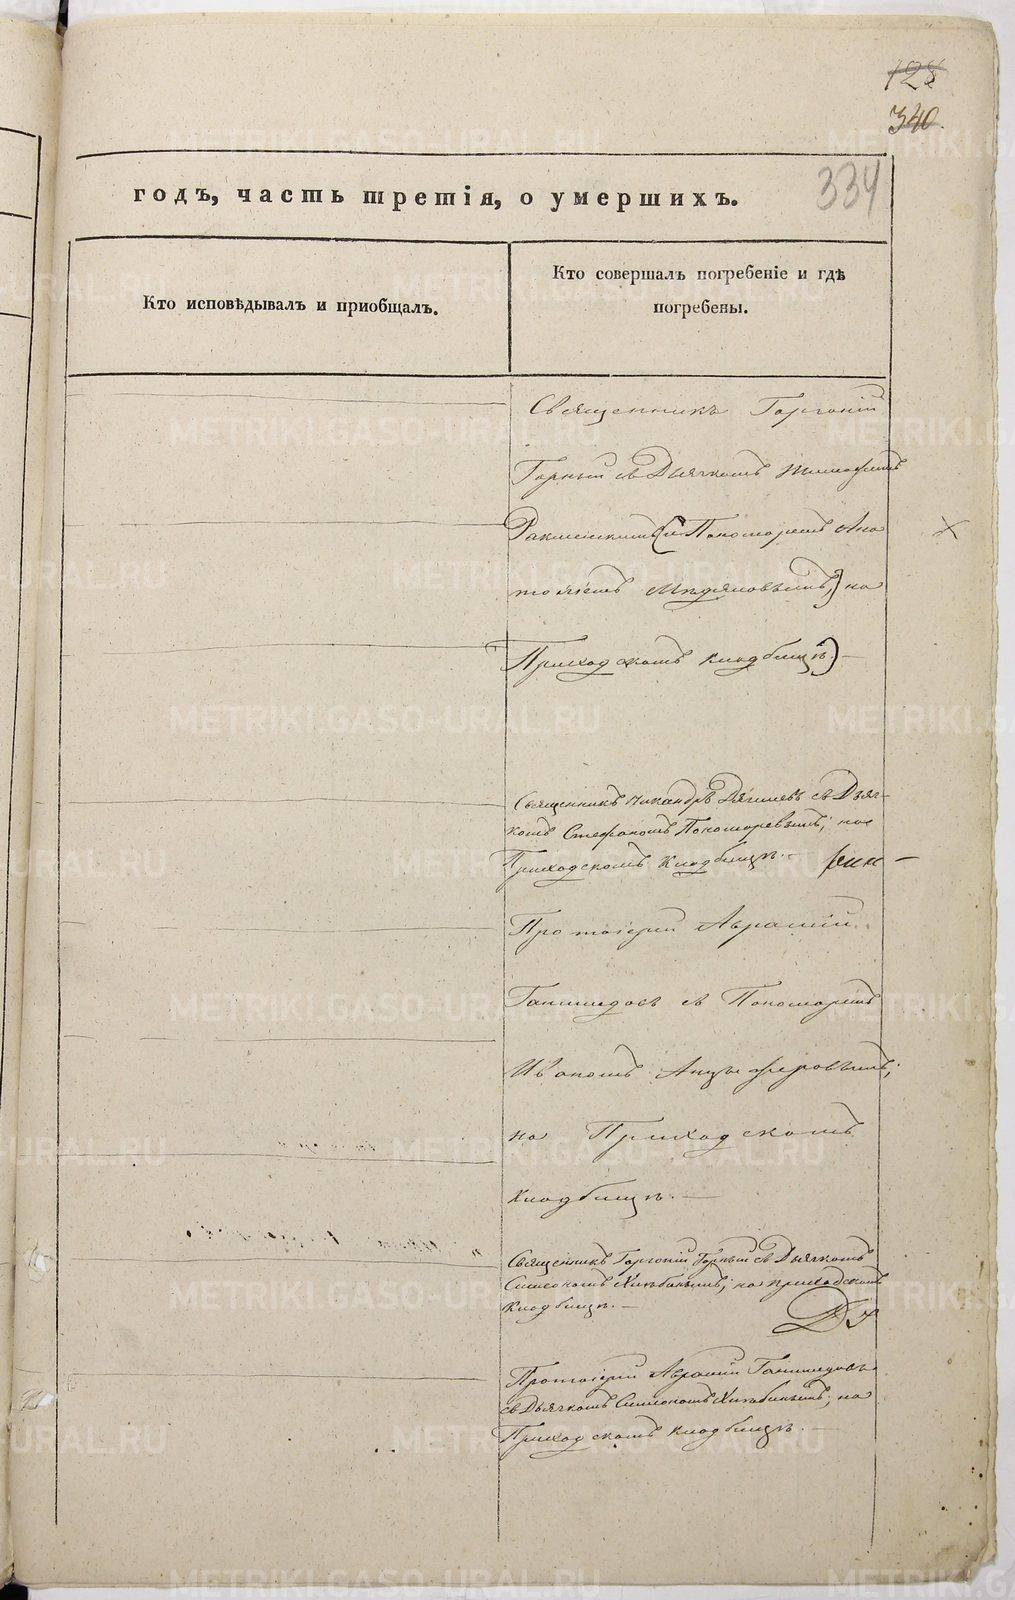 128
340.
334
годъ, часть третія, о умершихъ.
Кто исповѣдывалъ и приобщалъ.
Кто совершалъ погребеніе и гдѣ
погребены.
Священникъ Горгоній
Горный съ Дьячкомъ
и Пономаремъ Ана
толіемъ на
Приходскомъ кладбищѣ.
Священникъ Никандръ Дягилевъ съ Дьяч-
комъ Стефаномъ Пономаревымъ; на
Приходскомъ Кладбищѣ.
Протоіерей Авраамій
Ганимедовъ съ Пономаремъ
Иваномъ Анцыферовымъ;
на Приходскомъ
кладбищѣ.
Священникъ Горгоній Горный съ Дьячкомъ
Симеономъ Хлѣбинымъ; на приходскомъ
кладбищѣ.
Протоіерей Авраамій Ганимедовъ
съ Дьячкомъ Симеономъ Хлѣбинымъ; на
Приходскомъ кладбищѣ.
METRIKI.GASO-URAL.RU